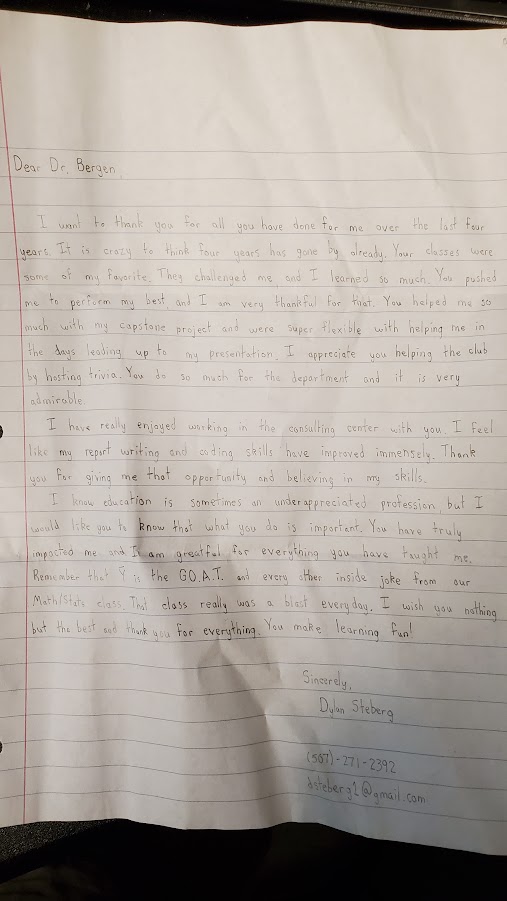 Dear Dr. Bergen,
I want to thank you for all you have done for me over the last four
years. It is crazy to think four years has gone by already. Your classes were
some of my favorite. They challenged me, and I learned so much. You pushed
me to perform my best, and I am very thankful for that. You helped me so
much with my capstone project and were super flexible with helping me in
the days leading up to my presentation. I appreciate you helping the club
by hosting trivia. You do so much for the department and it is very
admirable.
I have really enjoyed working in the consulting center with you. I feel
like my report writing and coding skills have improved immensely. Thank
you for giving me that opportunity and believing in my skills.
I know education is sometimes an underappreciated profession, but I
would like you to know that what you do is important. You have truly
impacted me, and I am greatful for everything you have taught me.
Remember that Ȳ is the G.O.A.T. and every other inside joke from our
Math/Stats class. That class really was a blast everyday. I wish you nothing
but the best and thank you for everything. You make learning fun!
Sincerely,
Dylan Steberg
(507)-271-2392
dsteberg1@gmail.com